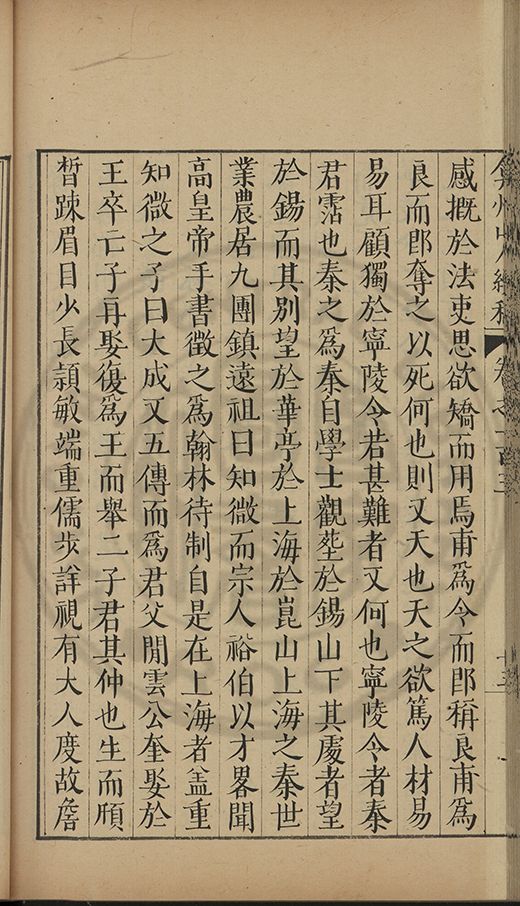 弇州山人續稿 卷之一百三 十三
感概於法吏思欲矯而用焉甫爲令而卽稱良甫爲
良而卽奪之以死何也則又天也天之欲篤人材易
易耳顧獨於寧陵令若甚難者又何也寧陵令者秦
君霑也秦之爲秦自學士觀塟於錫山下其處者望
於錫而其別望於華亭於上海於崑山上海之秦世
業農居九團鎮遠祖曰知微而宗人裕伯以才畧聞
高皇帝手書徵之爲翰林待制自是在上海者盖重
知微之子曰大成又五傳而爲君父閒雲公奎娶於
王卒亡子再娶復爲王而舉二子君其仲也生而頎
晳踈眉目少長頴敏端重儒步詳視有大人度故詹